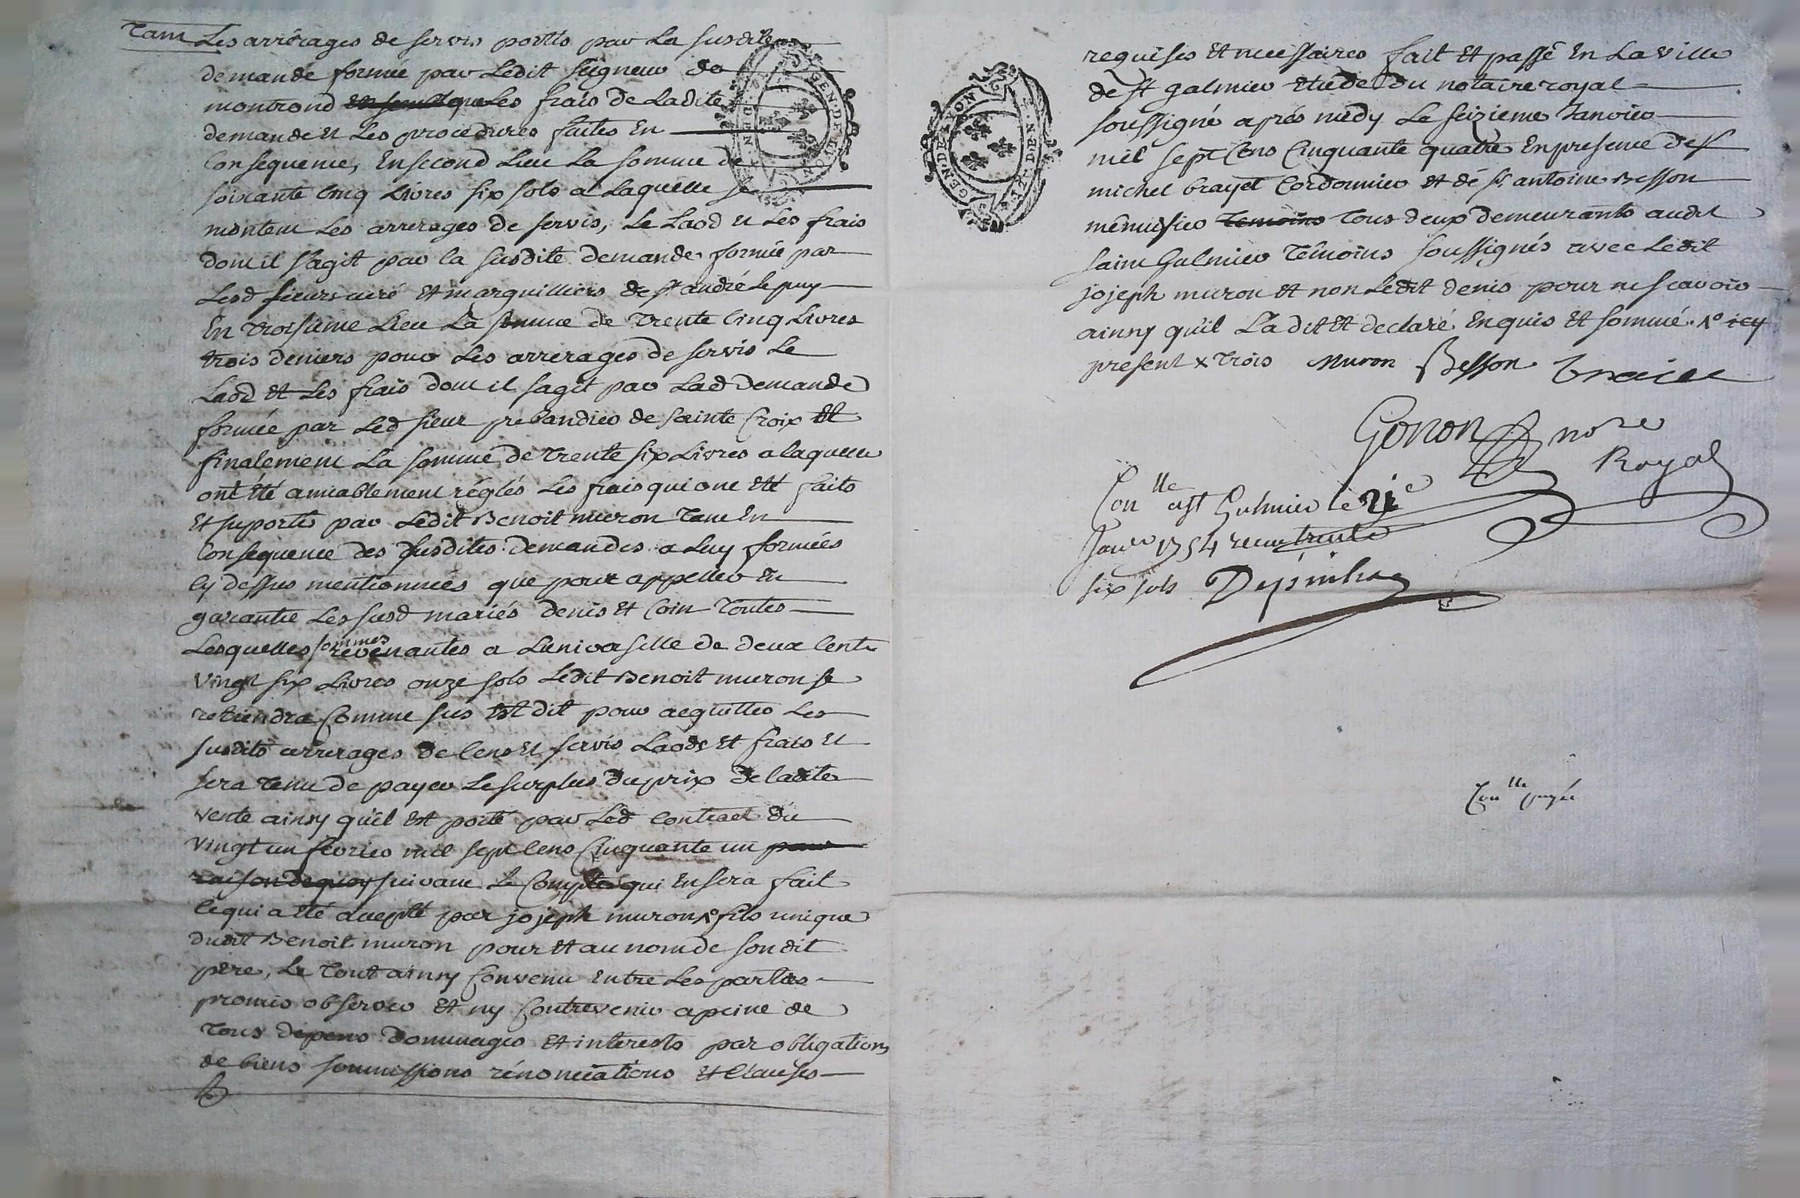 Tant Les arrérages de servis portés par La susdite
demande formée par Ledit seigneur de
montrond et semblque Les frais de Ladite
demande et Les procedures faites En
Consequence, En second Lieu La somme de
soixante Cinq Livres six sols a Laquelle se
montent Les arrerages de servis, Le Laod et Les frais
dont il s'agit par la susdite demande formée par
Lesd sieurs curé et marguilliers de st andré Le puy
En troisieme Lieu La somme de trente Cinq Livres
trois deniers pour Les arrerages de servis Le
Laod et Les frais dont il sagit par Lad demande
formée par Led sieur prebandier de sainte Croix et
finalement La somme de trente six Livres a laquelle
ont été amiablement réglés Les frais qui ont eté faits
Et suportés par Ledit Benoit muron tant En
Consequence des susdites demandes a Luy formées
Cy dessus mentionnées que pour appeller En
garantie Les susd mariés denis et Coin toutes
Lesquelles sommes revenantes a Luniversille de deux Cents
vingt six Livres onze sols Ledit Benoit muron se
retiendra Comme sus Est dit pour acquitter Les
susdits arrerages de Cens et servis Laods et frais et
sera tenu de payer Le surplus du prix de ladite
vente ainsy quil Est porté par Led Contract du
vingt un fevrier mil sept Cens Cinquante un pour
raison de quoy suivant Le Compte qui En sera fait
Ce qui a été accepté par jojeph muron fils unique
dudit Benoit muron pour et au nom de son dit
pere, Le tout ainsy Convenu Entre Les parties
promis observer et ny Contrevenir a peine de
tous depens dommages et interests par obligations
de biens soumissions rénonciations et Clauses
requises et necessaires fait et passé En La ville
de st galmier etude du notaire royal
soussigné aprés midy Le seizieme Janvier
mil sept Cens Cinquante quatre En presence de sr
michel brayet Cordonnier et de sr antoine Besson
menuisier temoins tous deux demeurants audit
saint Galmier temoins soussignés avec Ledit
jojeph muron et non Ledit denis pour ne scavoir
ainsy quil L'a dit et declaré Enquis et sommé
present x trois Muron Besson
Gonon nore
Royal
Con lle a st Galmier le 21e
Janer 1754 recu trente
six sols
Con lle payée
GEN DE LYON
GEN DE LYON